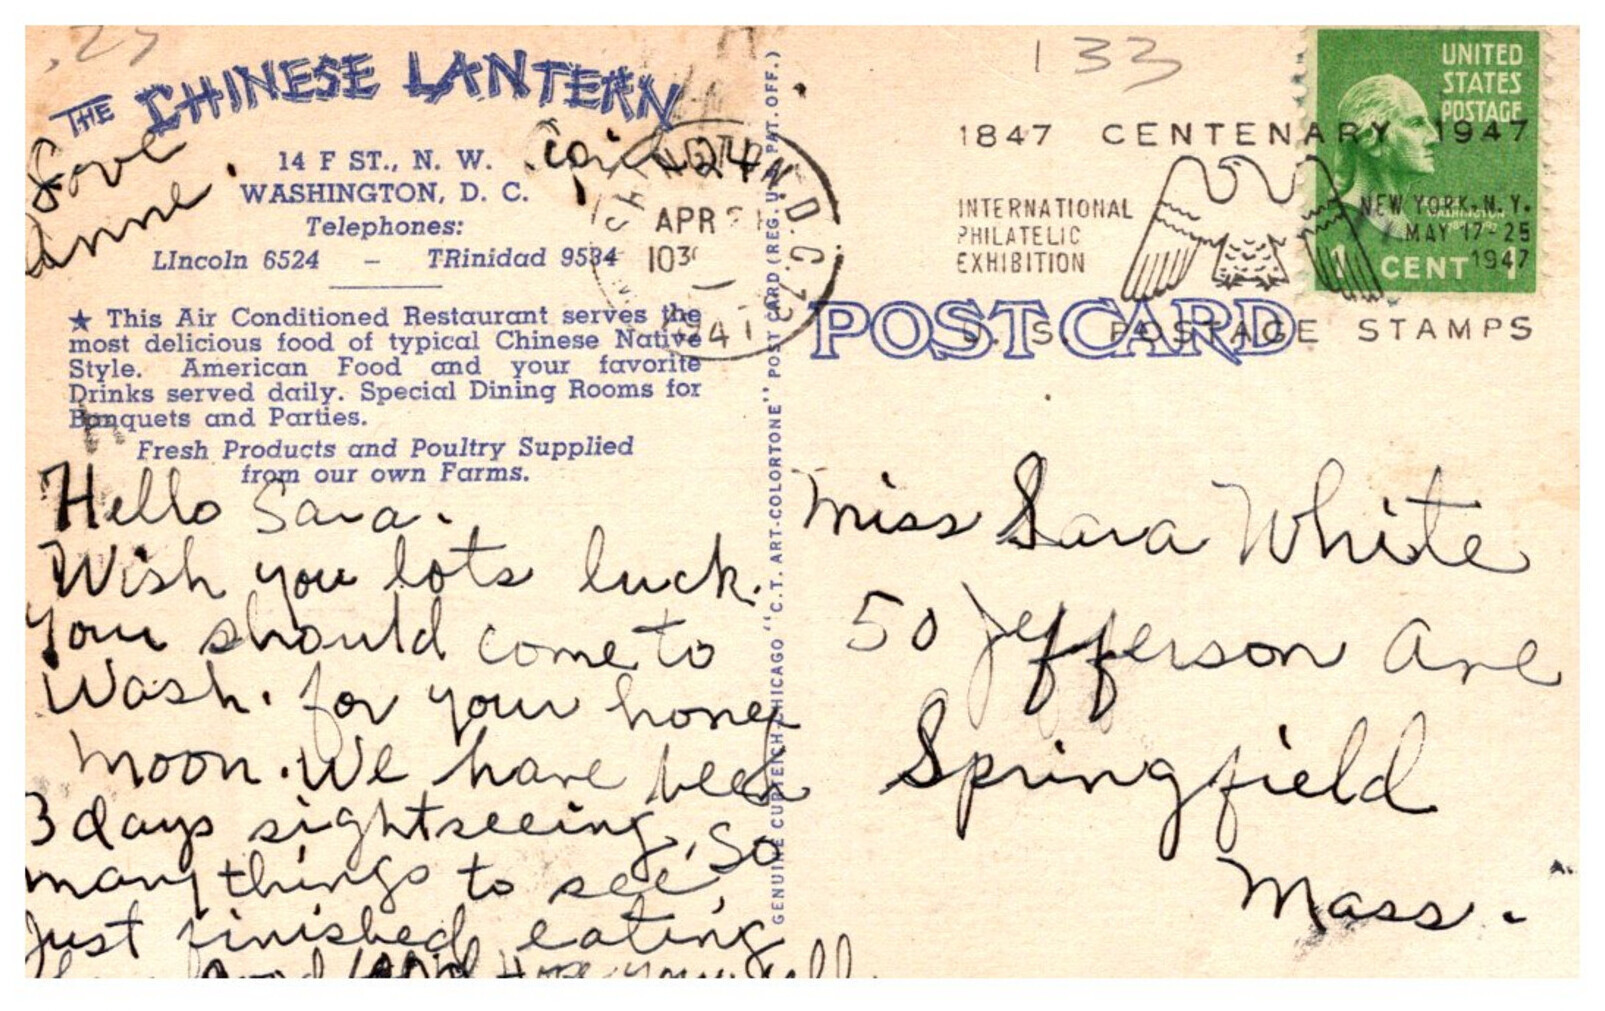 THE CHINESE LANTERN
14 F ST., N. W.
WASHINGTON, D. C.
Telephones:
LIncoln 6524 – TRinidad 9534
★ This Air Conditioned Restaurant serves the
most delicious food of typical Chinese Native
Style. American Food and your favorite
Drinks served daily. Special Dining Rooms for
Banquets and Parties.
Fresh Products and Poultry Supplied
from our own Farms.
Love
Anne.
24
Hello Sara.
Wish you lots luck.
You should come to
Wash. for your honey
moon. We have been
3 days sightseeing. So
many things to see,
Just finished eating
GENUINE CURTEICH-CHICAGO "C.T. ART-COLORTONE" POST CARD (REG. U. S. PAT. OFF.)
D.C.
APR
1030
1947
133
1847 CENTENARY 1947
INTERNATIONAL
PHILATELIC
EXHIBITION
NEW YORK, N.Y.
MAY 17-25
1947
U. S. POSTAGE STAMPS
UNITED
STATES
POSTAGE
WASHINGTON
1 CENT 1
POST CARD
Miss Sara White
50 Jefferson Ave
Springfield
Mass.